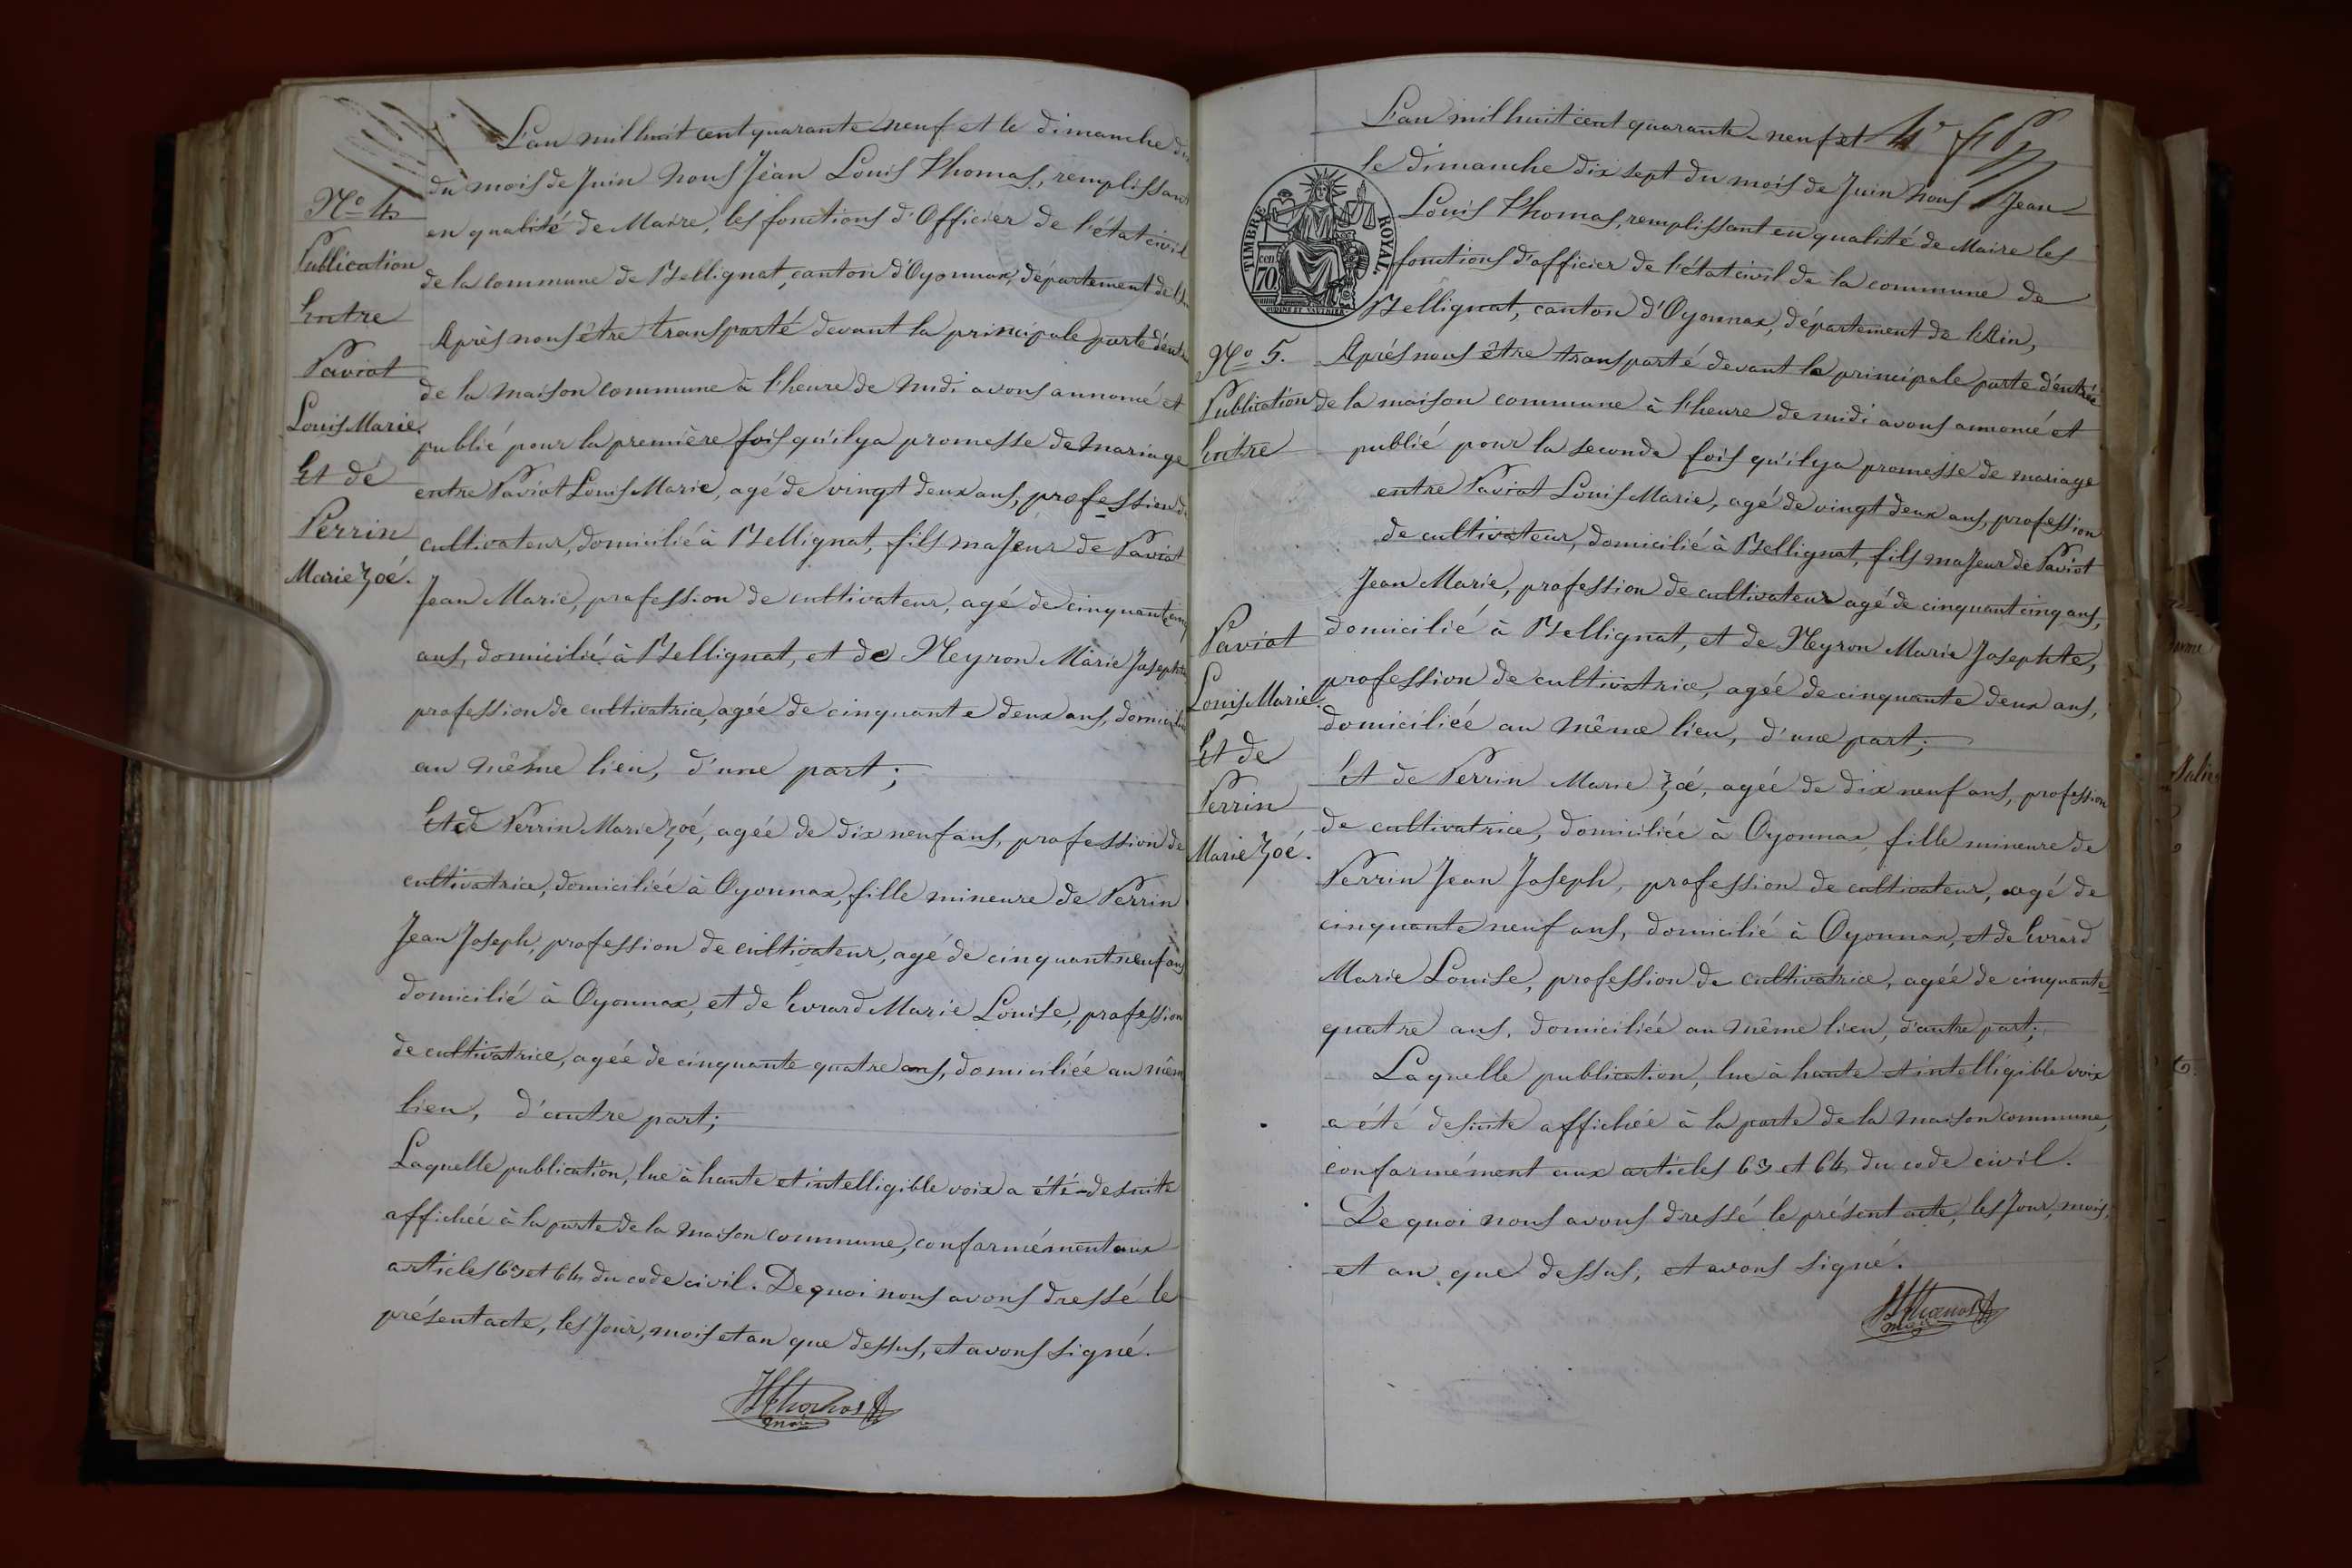 Nº 4
Publication
Entre
Paviot
Louis Marie
Et de
Perrin
Marie Zoé.
L'an mil huit cent quarante neuf et le dimanche dix
du mois de Juin Nous Jean Louis Thomas, remplissant
en qualité de Maire, les fonctions d'Officier de l'état civil
de la commune de Bellignat, canton d'Oyonnax, département de l'Ain
Après nous être transporté devant la principale porte d'entrée
de la maison commune à l'heure de midi avons annoncé et
publié pour la première fois qu'il y a promesse de mariage
entre Paviot Louis Marie, agé de vingt deux ans, profession de
cultivateur, domicilié à Bellignat, fils majeur de Paviot
Jean Marie, profession de cultivateur, agé de cinquant cinq
ans, domicilié à Bellignat, et de Neyron Marie Josephte
profession de cultivatrice, agée de cinquante deux ans, domiciliée
au même lieu, d'une part;
Et de Perrin Marie Zoé, agée de dix neuf ans, profession de
cultivatrice, domiciliée à Oyonnax, fille mineure de Perrin
Jean Joseph, profession de cultivateur, agé de cinquant neuf ans
domicilié à Oyonnax, et de Evrard Marie Louise, profession
de cultivatrice, agée de cinquante quatre ans, domiciliée au même
lieu, d'autre part;
Laquelle publication, lue à haute et intelligible voix a été desuite
affichée à la porte de la maison commune, conformément aux
articles 63 et 64 du code civil. De quoi nous avons dressé le
présent acte, les Jour, mois et an que dessus, et avons signé.
JLThomas
maire
4e f 6
TIMBRE ROYAL.
70 cen
Nº 5.
Publication
Entre
Paviot
Louis Marie
Et de
Perrin
Marie Zoé.
L'an mil huit cent quarante neuf et
le dimanche dix sept du mois de Juin Nous Jean
Louis Thomas, remplissant en qualité de Maire les
fonctions d'officier de l'état civil de la commune de
Bellignat, canton d'Oyonnax, département de l'Ain,
Après nous être transporté devant la principale porte d'entrée
de la maison commune à l'heure de midi avons annoncé et
publié pour la seconde fois qu'il y a promesse de mariage
entre Paviot Louis Marie, agé de vingt deux ans, profession
de cultivateur, domicilié à Bellignat, fils majeur de Paviot
Jean Marie, profession de cultivateur agé de cinquant cinq ans,
domicilié à Bellignat, et de Neyron Marie Josephte,
profession de cultivatrice, agée de cinquante deux ans,
domiciliée au même lieu, d'une part;
Et de Perrin Marie Zoé, agée de dix neuf ans, profession
de cultivatrice, domiciliée à Oyonnax, fille mineure de
Perrin Jean Joseph, profession de cultivateur, agé de
cinquante neuf ans, domicilié à Oyonnax, et de Evrard
Marie Louise, profession de cultivatrice, agée de cinquante
quatre ans, domiciliée au même lieu, d'autre part;
Laquelle publication, lue à haute et intelligible voix
a été desuite affichée à la porte de la maison commune,
conformément aux articles 63 et 64 du code civil.
De quoi nous avons dressé le présent acte, les Jour, mois,
et an que dessus, et avons signé.
JLThomas
maire